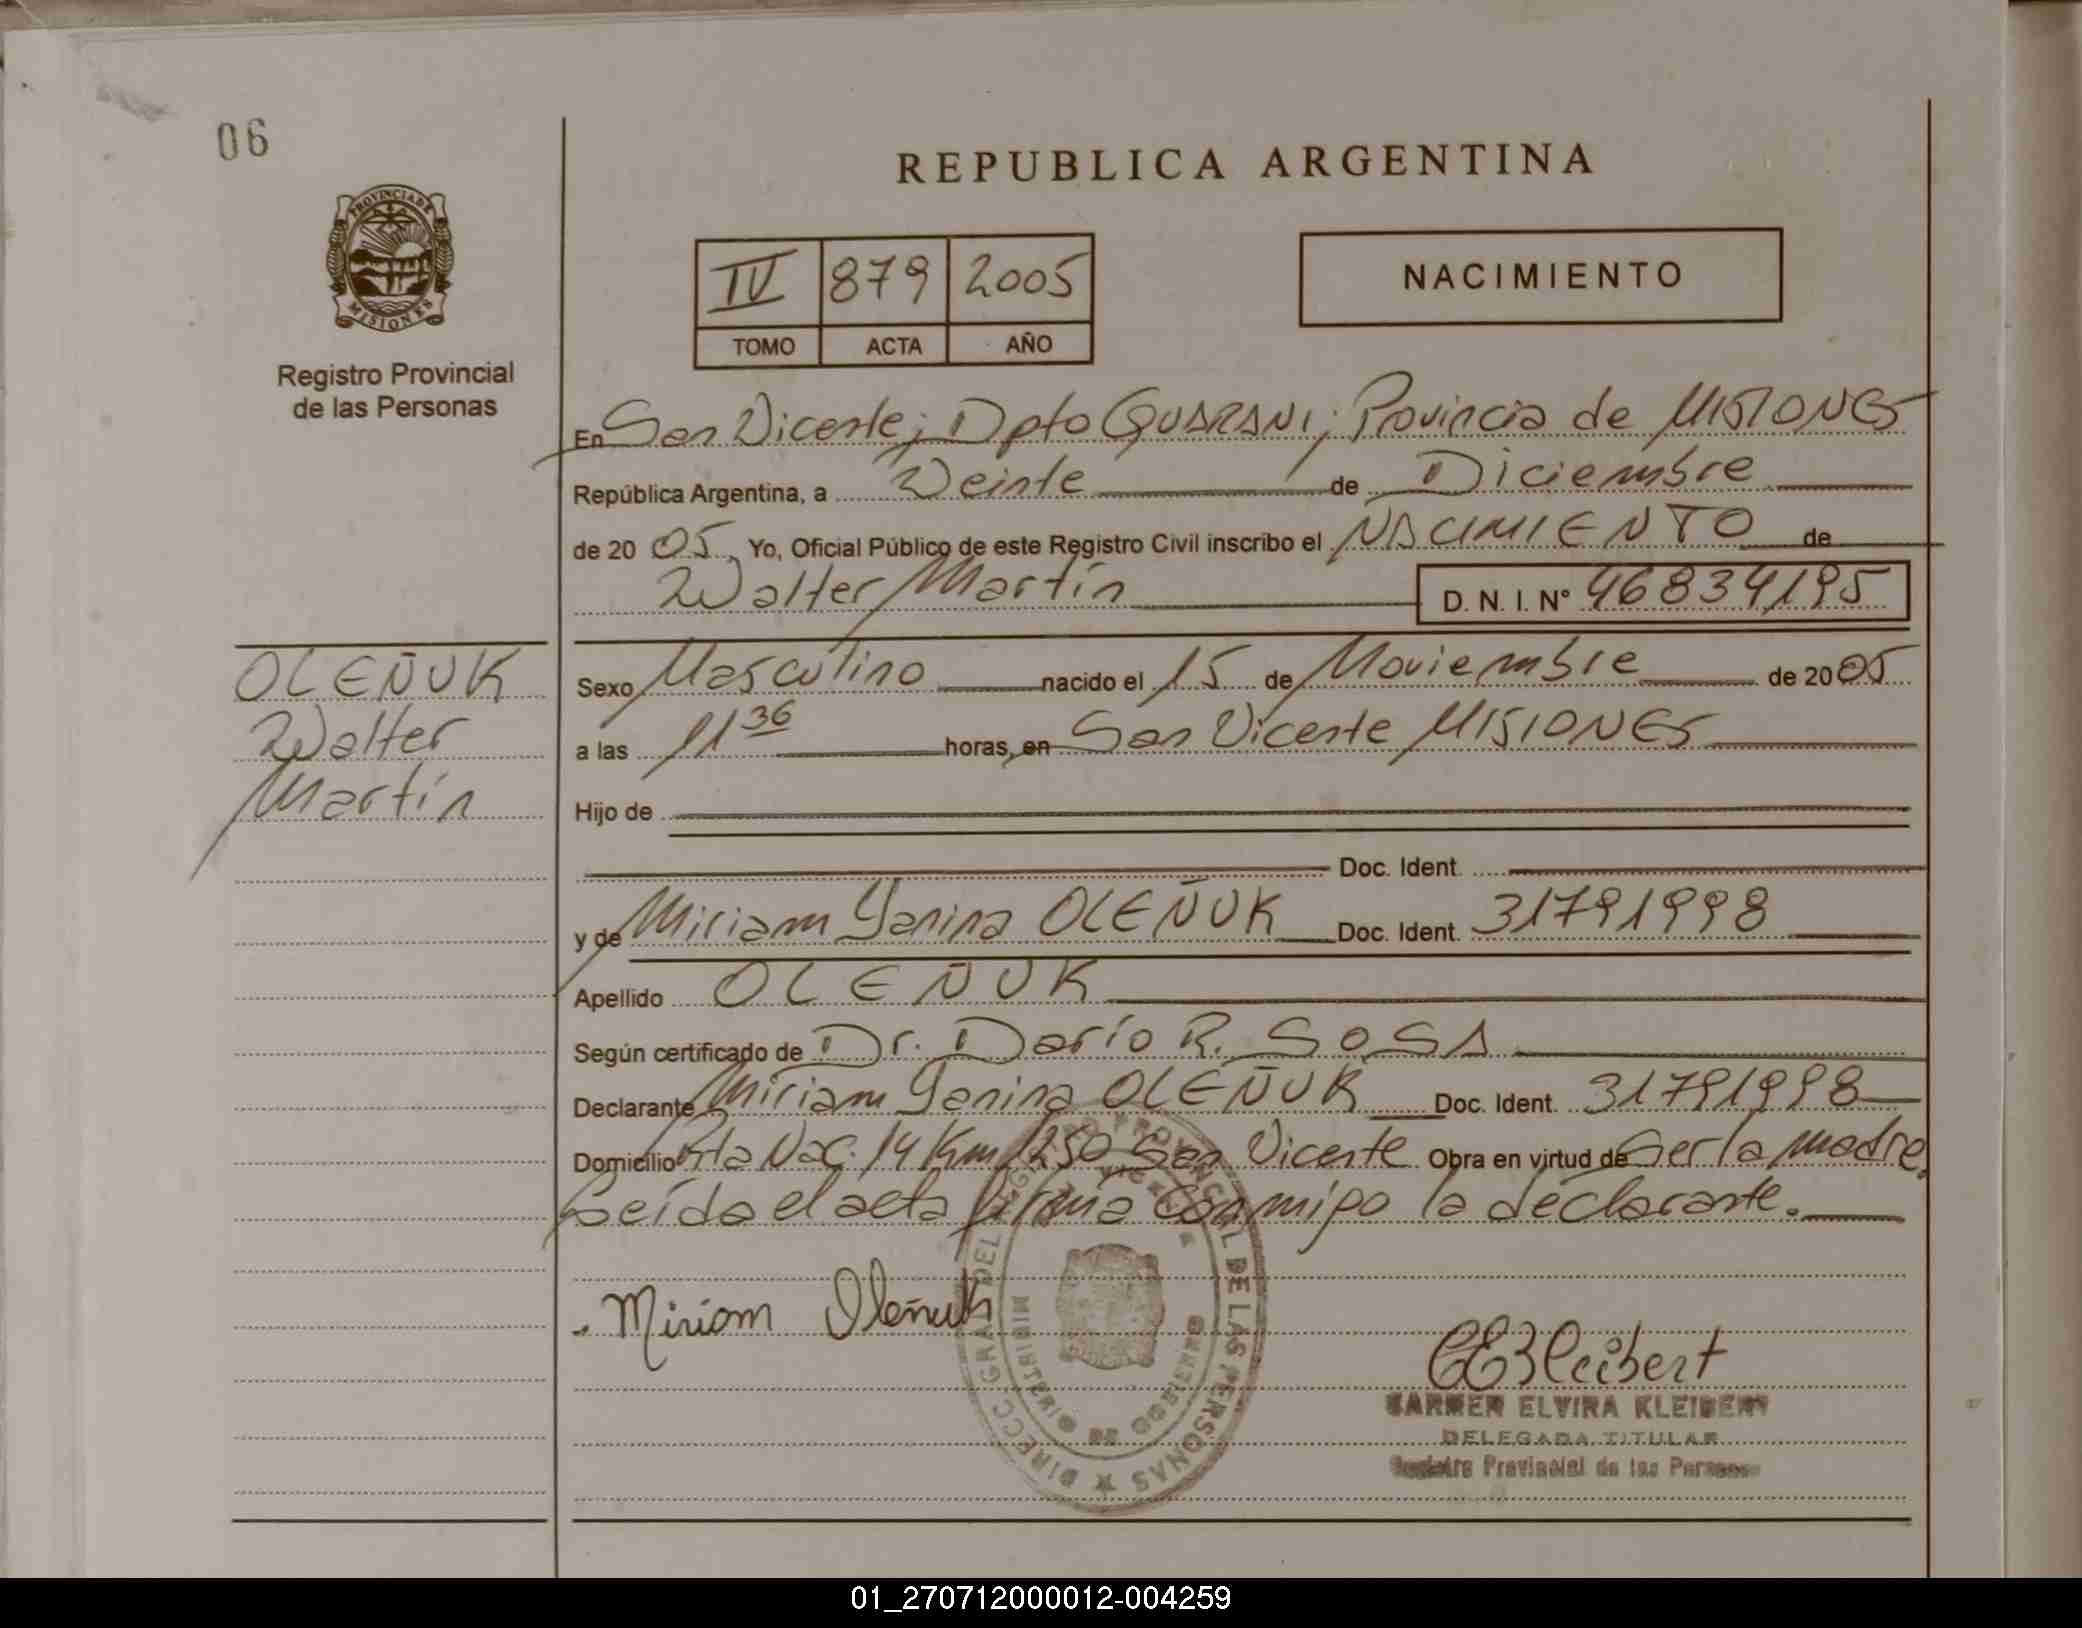 06
PROVINCIA DE
MISIONES
Registro Provincial
de las Personas
REPUBLICA ARGENTINA
IV 879 2005
TOMO ACTA AÑO
NACIMIENTO
En San Vicente; Dpto GUARANI; Provincia de MISIONES
República Argentina, a Veinte de Diciembre
de 20 05, Yo, Oficial Público de este Registro Civil inscribo el NACIMIENTO de
Walter Martín D. N. I. N° 46834195
OLEÑUK
Walter
Martín
Sexo Masculino nacido el 15 de Noviembre de 20 05
a las 11 36 horas, en San Vicente MISIONES
Hijo de
Doc. Ident.
y de Miriam Yanina OLEÑUK Doc. Ident. 31791998
Apellido OLEÑUK
Según certificado de Dr. Darío R. SOSA
Declarante Miriam Yanina OLEÑUK Doc. Ident. 31791998
Domicilio Rta Nac. 14 Km 1250 San Vicente Obra en virtud de Ser la madre.
Leída el acta firma conmigo la declarante.
Miriam Oleñuk
DIRECC. GRAL DEL REGISTRO PROVINCIAL DE LAS PERSONAS
MINISTERIO DE GOBIERNO
CEKleibert
CARMEN ELVIRA KLEIBERT
DELEGADA TITULAR
Registro Provincial de las Personas
01_270712000012-004259